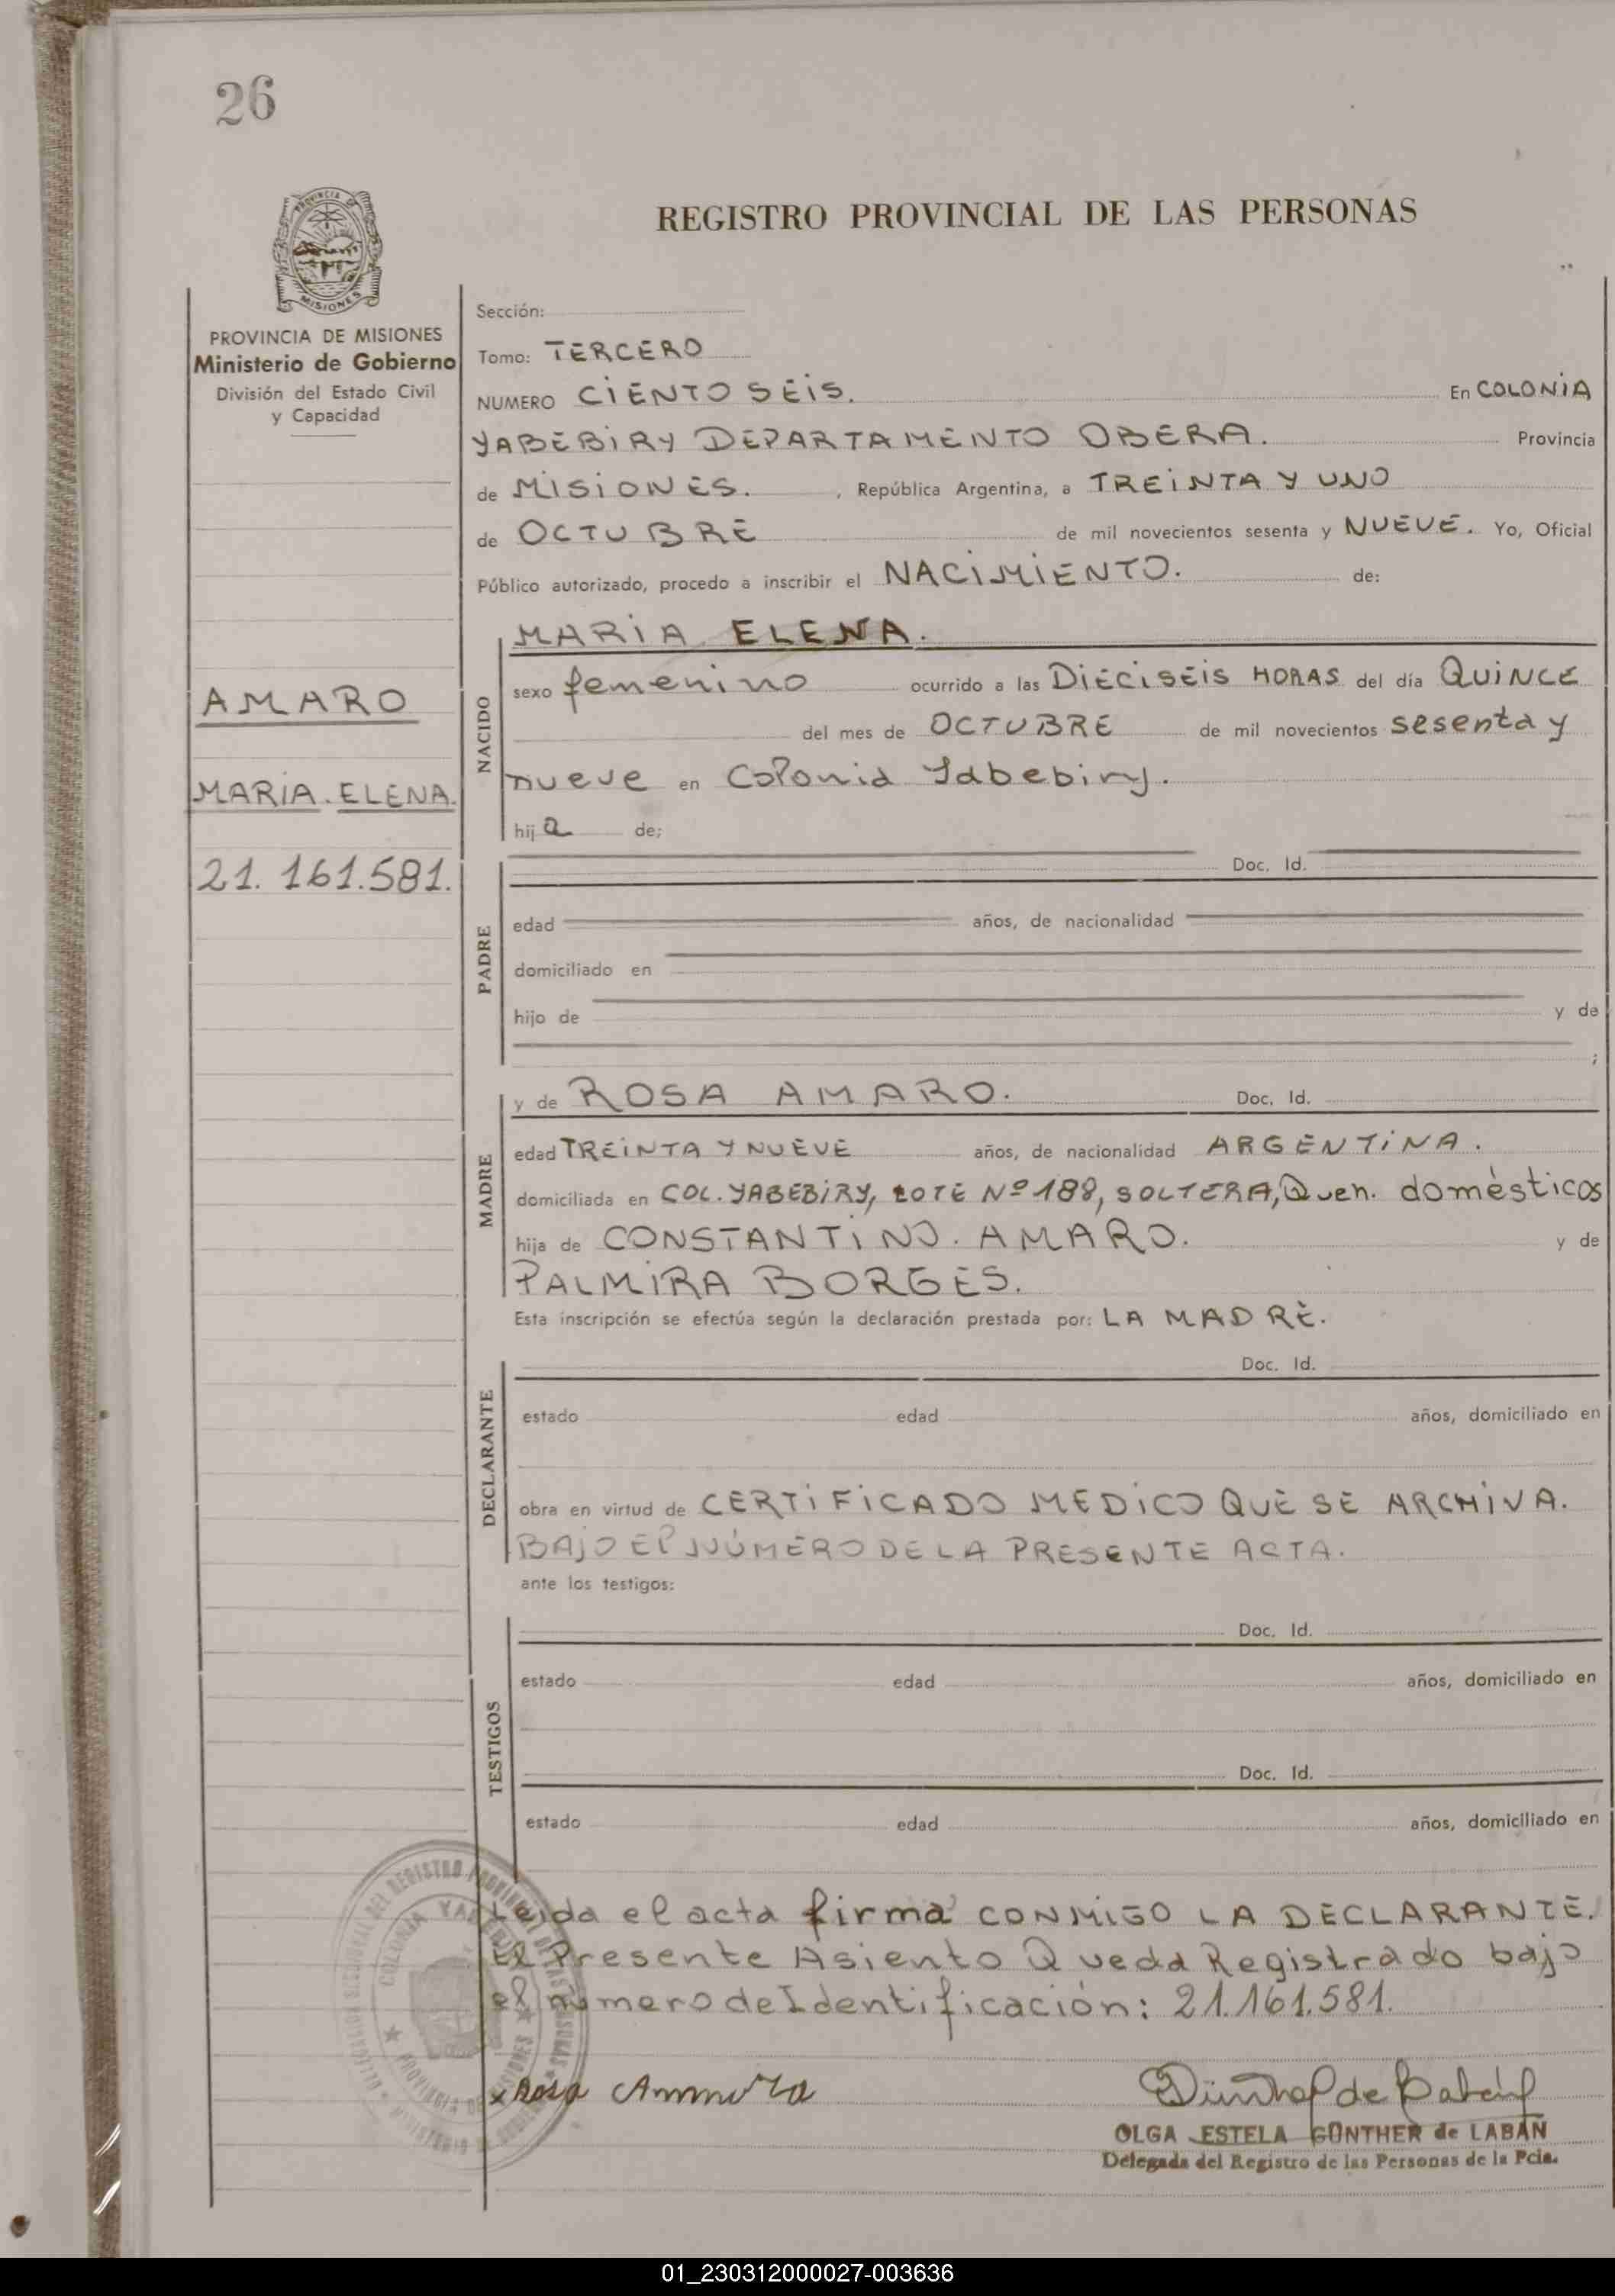 26
PROVINCIA DE MISIONES
REGISTRO PROVINCIAL DE LAS PERSONAS
PROVINCIA DE MISIONES
Ministerio de Gobierno
División del Estado Civil
y Capacidad
AMARO
MARIA. ELENA.
21. 161.581.
Sección:
Tomo: TERCERO
NUMERO CIENTO SEIS. En COLONIA
YABEBIRY DEPARTAMENTO OBERA. Provincia
de MISIONES. , República Argentina, a TREINTA Y UNO
de OCTUBRE de mil novecientos sesenta y NUEVE. Yo, Oficial
Público autorizado, procedo a inscribir el NACIMIENTO. de:
NACIDO
MARIA ELENA.
sexo femenino ocurrido a las DIECISEIS HORAS del día QUINCE
del mes de OCTUBRE de mil novecientos sesenta y
nueve en Colonia Yabebiry.
hija de;
PADRE
Doc. Id.
edad años, de nacionalidad
domiciliado en
hijo de y de
;
MADRE
y de ROSA AMARO. Doc. Id.
edad TREINTA Y NUEVE años, de nacionalidad ARGENTINA.
domiciliada en COL. YABEBIRY, LOTE Nº 188, SOLTERA, Queh. domésticos
hija de CONSTANTINO. AMARO. y de
PALMIRA BORGES.
Esta inscripción se efectúa según la declaración prestada por: LA MADRE.
DECLARANTE
Doc. Id.
estado edad años, domiciliado en
obra en virtud de CERTIFICADO MEDICO QUE SE ARCHIVA.
BAJO El NÚMERO DE LA PRESENTE ACTA.
ante los testigos:
TESTIGOS
Doc. Id.
estado edad años, domiciliado en
Doc. Id.
estado edad años, domiciliado en
Leida el acta firma CONMIGO LA DECLARANTE.
El Presente Asiento Queda Registrado bajo
el número de Identificación: 21.161.581.
x Rosa
OLGA ESTELA GÜNTHER de LABAN
Delegada del Registro de las Personas de la Pcia.
01_230312000027-003636